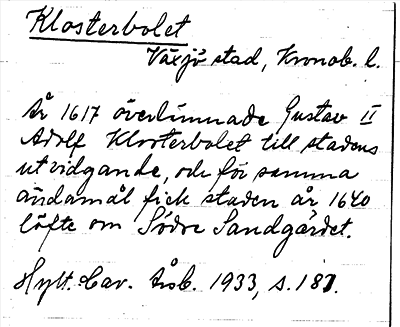 Klosterbolet
Växjö stad, Kronob. l.
År 1617 överlämnade Gustav II
Adolf Klosterbolet till stadens
utvidgande, och för samma
ändamål fick staden år 1640
löfte om Södra Sandgärdet.
Hylt. Cav. Årsb. 1933, s. 187.